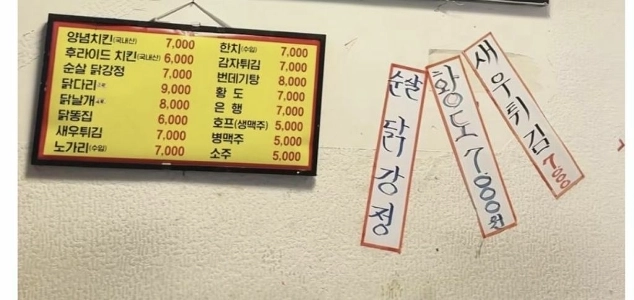 양념치킨(국내산) 7,000
후라이드 치킨(국내산) 6,000
순살 닭강정 7,000
닭다리 9,000
닭날개 8,000
닭똥집 6,000
새우튀김 7,000
노가리(수입) 7,000
한치(수입) 7,000
감자튀김 7,000
번데기탕 8,000
황 도 7,000
은 행 7,000
호프(생맥주) 5,000
병맥주 5,000
소주 5,000
순살 닭강정
황도 7.000원
새우튀김